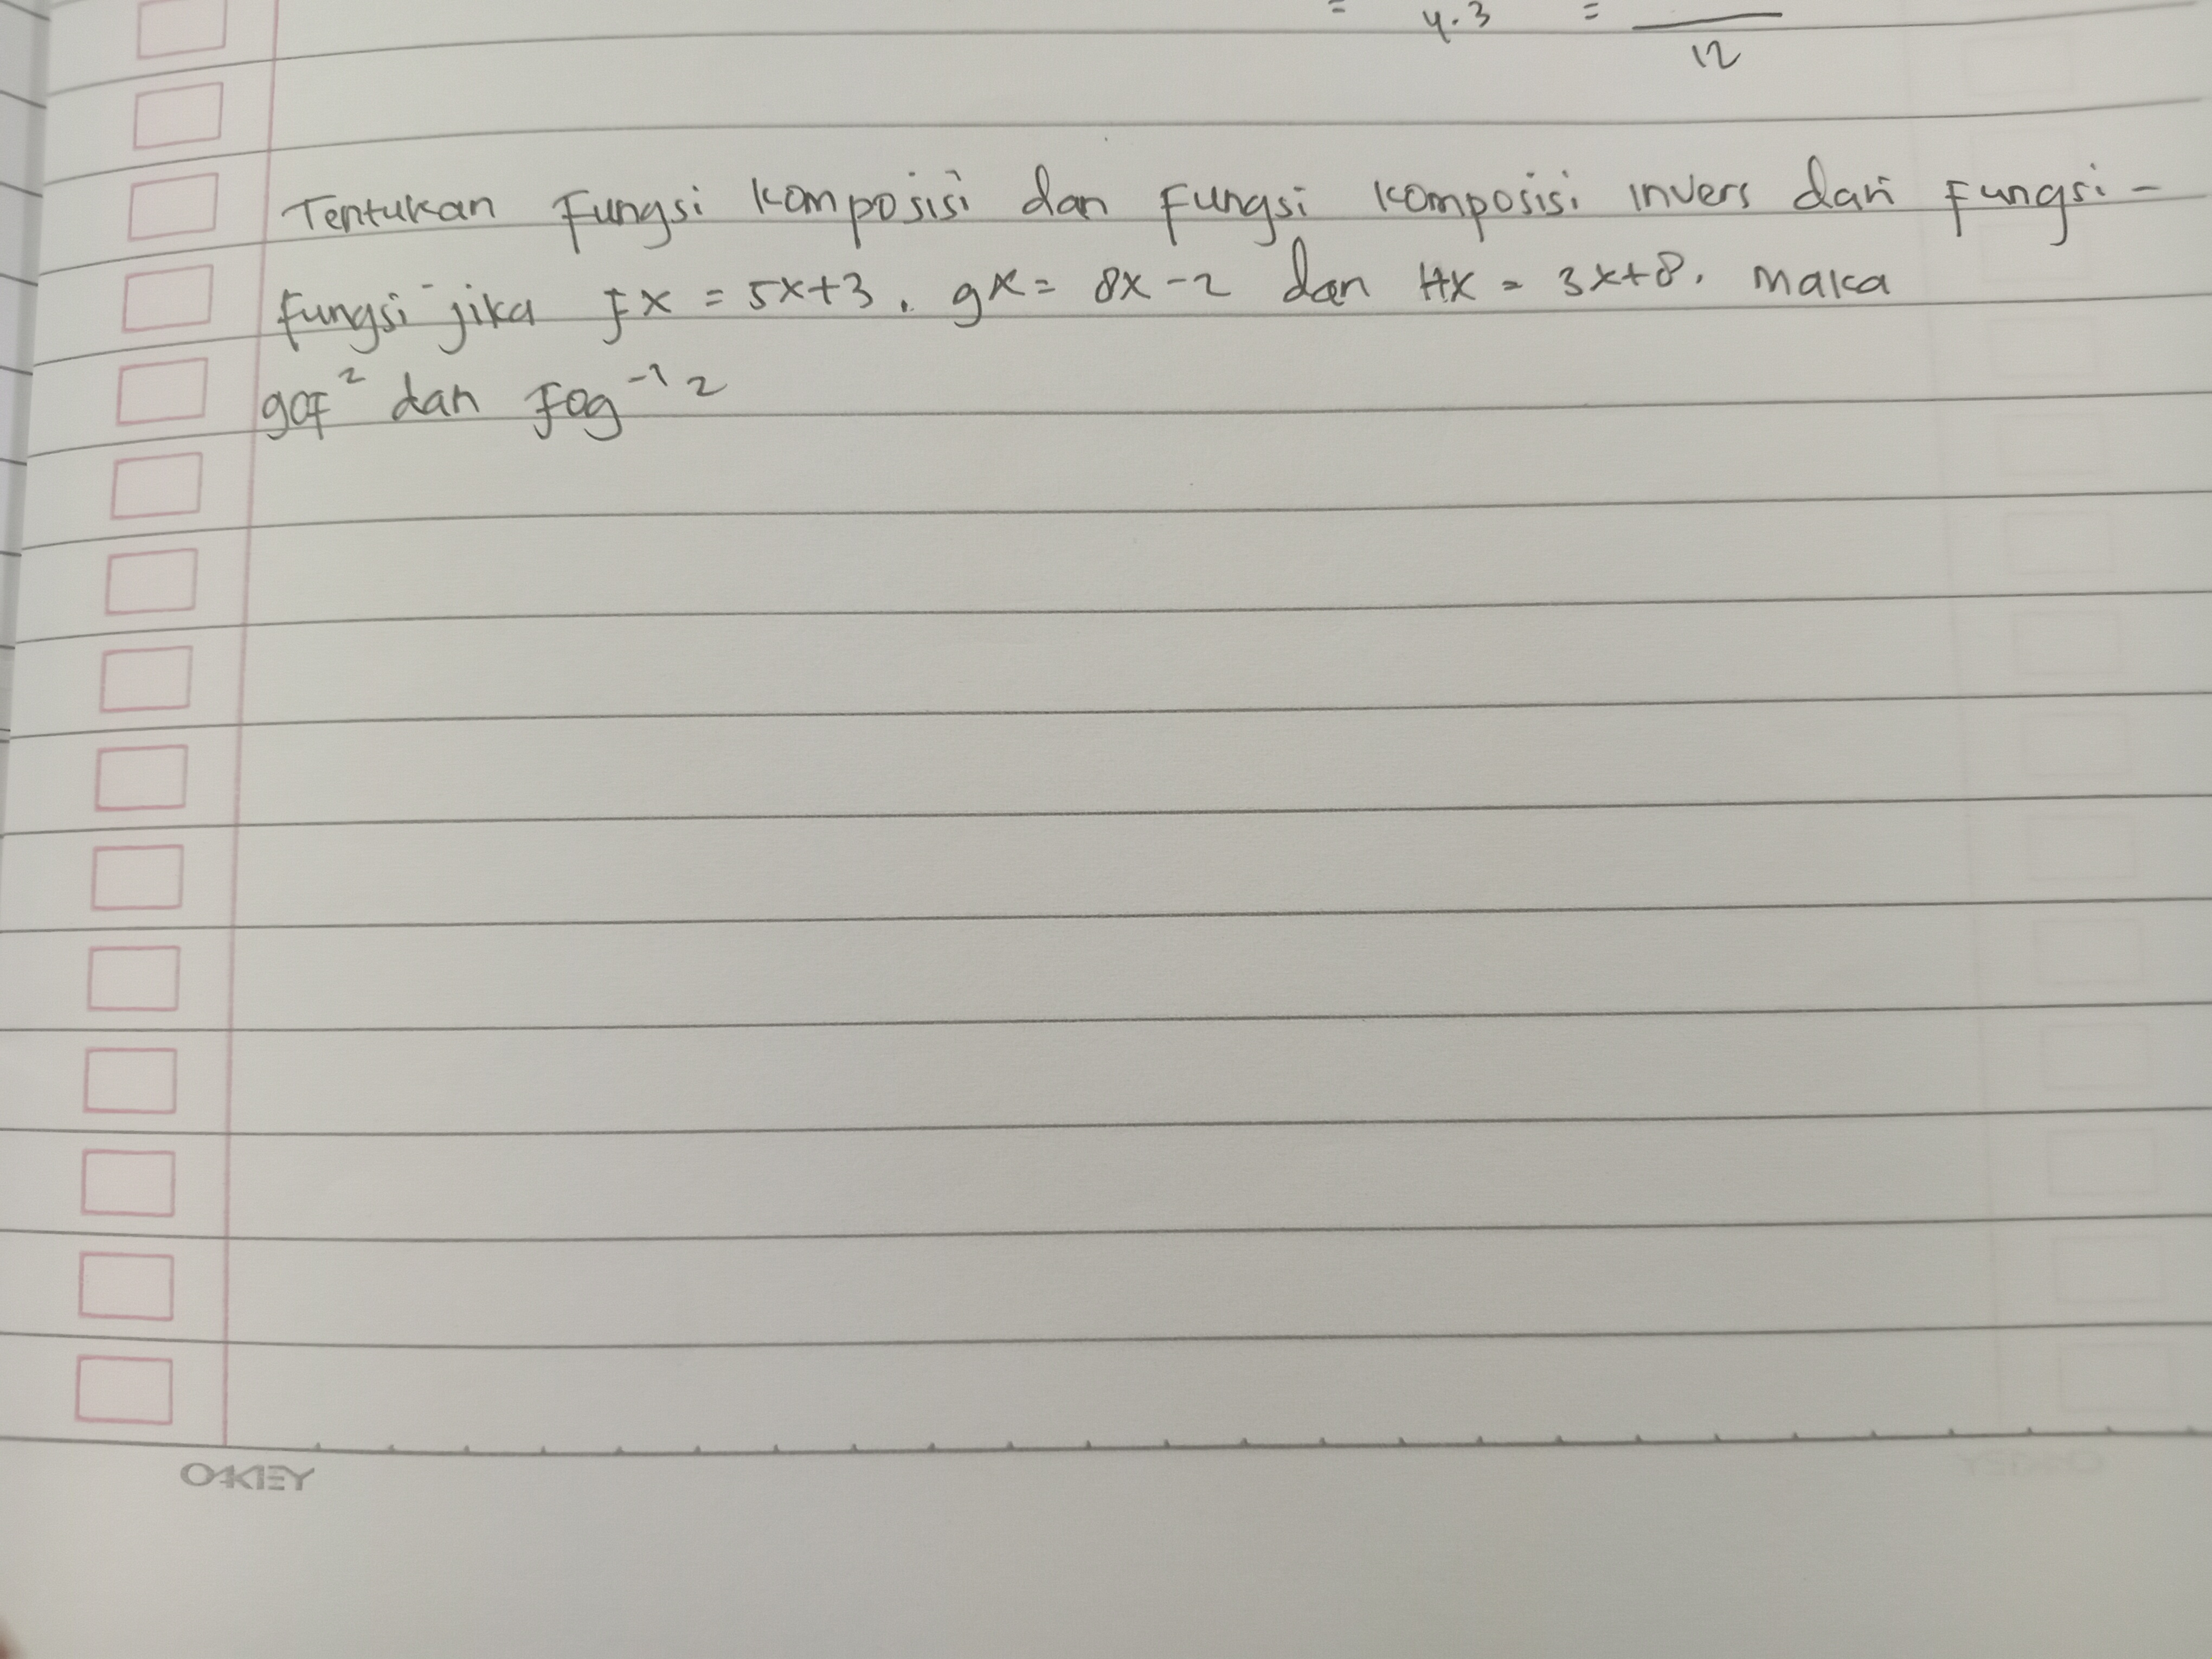 = 4.3 = 12
Tentukan Fungsi komposisi dan Fungsi komposisi invers dari Fungsi-
fungsi jika fx = 5x+3, gx = 8x-2 dan Hx = 3x+8. Maka
gof² dan Fog⁻¹ 2
OAKLEY